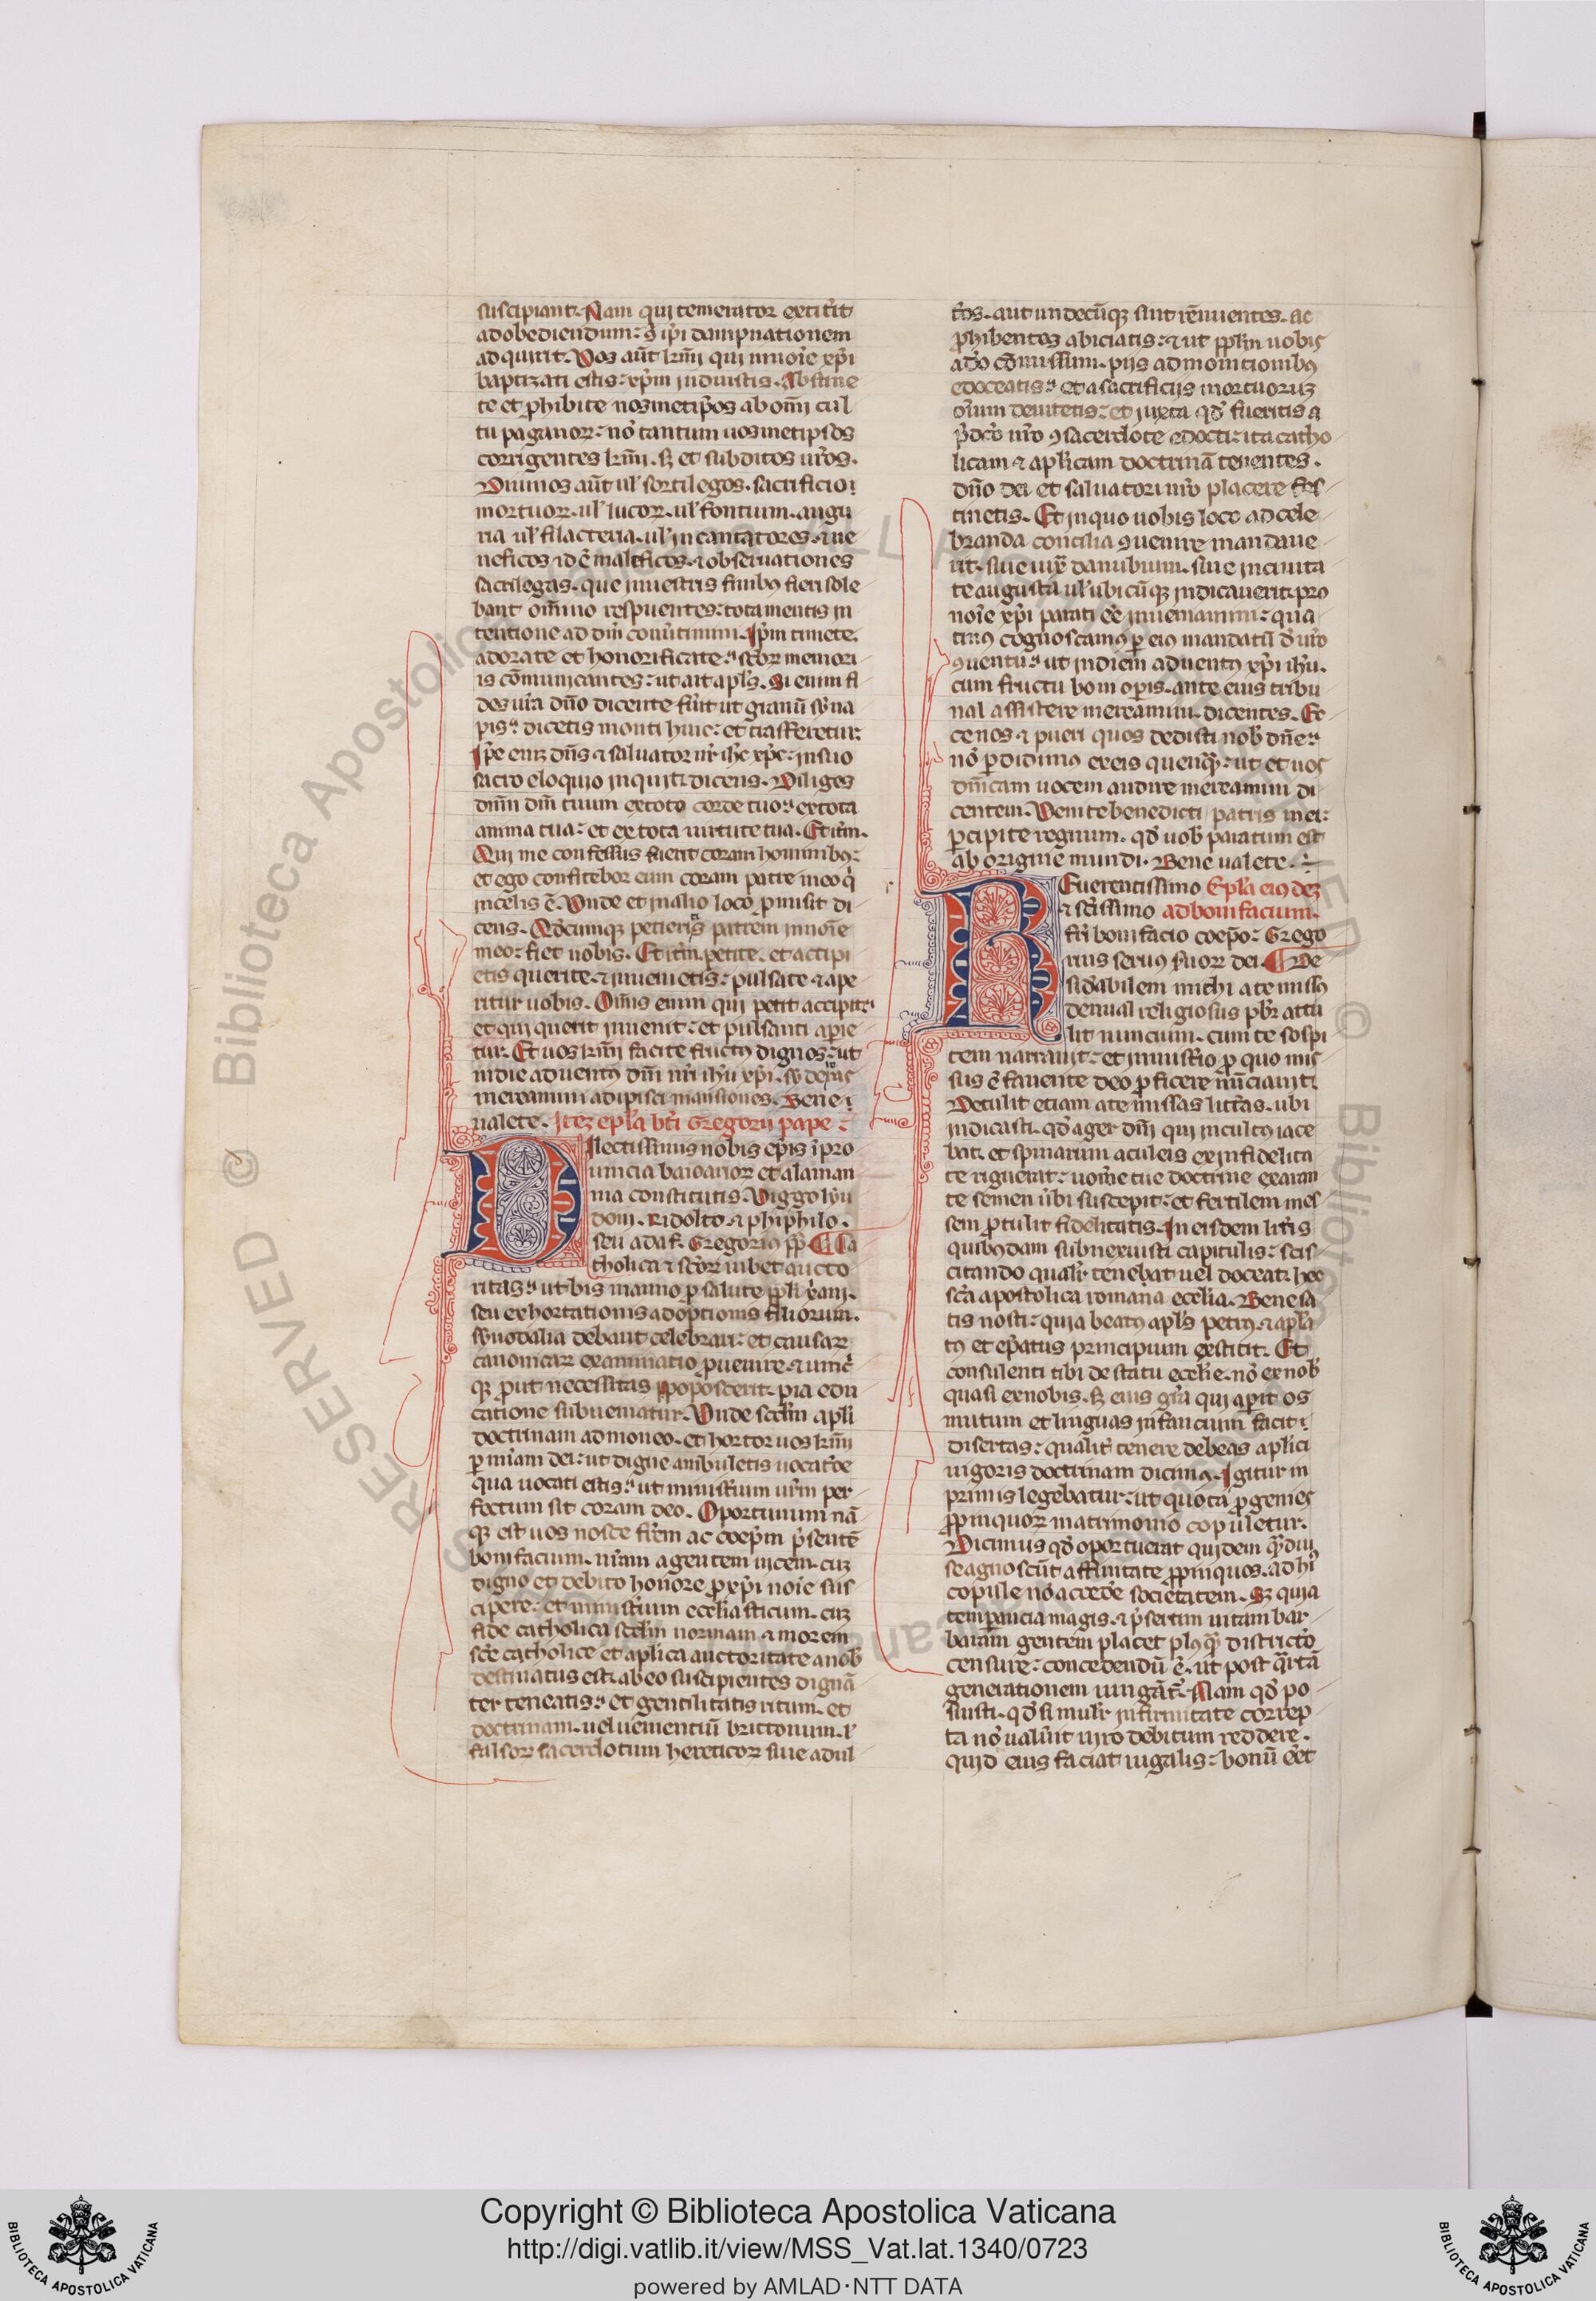 suscipiant. Nam qui temerator extit̾it
ad obediendum: sͥ ip̄i dampnationem
adquirit. Vos aūt kr̄mi qui in noīe xp̄i
baptizati estis: xp̄m induistis. Abstine
te et ꝓhibite nosmetip̄os ab om̄i cul
tu paganoꝝ: nō tantum uosmetipsos
corrigentes kr̄mi. sꝫ et subditos ur̄os.
Diuinos aūt ul̄ sortilegos. sacrificio
mortuoꝝ. ul̄ lucoꝝ. ul̄ fontium. augu
ria ul̄ filacteria. ul̄ incantatores. ⁊ ue
neficos id ē maleficos. ⁊ obseruationes
sacrilegas. que in uestris finibꝰ fieri sole
bant om̄ino respuentes: tota mentis in
tentione ad dm̄ conu̾timini. Ip̄m timete.
adorate et honorificate: sc̄oꝝ memori
is cōmunicantes: ut ait apl̄s. Si enim fi
des ur̄a dn̄o dicente fu̾it ut granū syna
pis: dicetis monti huic: et trasferetur:
Ip̄e enꝫ dn̄s ⁊ saluator nr̄ ih̄c xp̄c: in suo
sacro eloquio inquit dicens. Diliges
dn̄m dm̄ tuum ex toto corde tuo: ex tota
anima tua: et ex tota uirtute tua. Et itm̄.
Qui me confessus fuerit coram hominibꝰ:
et ego confitebor eum coram patre meo qͥ
in celis ē. Vnde et in alio loco ꝓmisit di
cens. Qd̄cumqꝫ petieritis patrem in noīe
meo: fiet uobis. Et itm̄. petite. et accipi
etis querite. ⁊ inuenietis: pulsate ⁊ ape
ritur uobis. Om̄is enim qui petit accipit:
et qui querit inuenit: et pulsanti apie
tur. Et uos kr̄mi facite fructꝰ dignos: ut
in die aduentꝰ dn̄i nr̄i ih̄u xp̄i.
mereamini adipisci mansiones. Bene
ualete. Iteꝫ epl̄a bt̄i Gregorii pape:
Dilectissimis nobis ep̄is ī pro
uincia baioarioꝝ et alaman
nia constitutis. Viggo lyu
doni. Ridolto. ⁊ phiphilo.
seu adat̄. Gregoriꝰ pp̄. Ca
tholica ⁊ sc̄oꝝ iubet aucto
ritas: ut bis in anno ꝓ salute ppl̄i x̄ani.
seu exhortationis adoptionis filiorum.
synodalia debant celebrari: et causaꝝ
canonicaꝝ examinatio ꝓuenire. ⁊ unic̾
qꝫ ꝓut necessitas poposcerit. pia edu
catione subueniatur. Vnde scd̄m apl̄i
doctrinam admoneo. et hortor uos kr̄mi
ꝑ mīam dei: ut digne ambuletis uocat̄oe
qua uocati estis: ut minist̾ium ur̄m per
fectum sit coram deo. Oportunum nā
qꝫ est uos nosce fr̄em ac coep̄m p̄sentē
bonifacium. nr̄am agentem uicem. cuꝫ
digno et debito honore ꝓ xp̄i noīe sus
cipere: et minist̾ium ecclesiasticum. cuꝫ
fide catholica scd̄m normam ⁊ morem
sc̄e catholice et aplica auctoritate a nob̄
destinatus est. ab eo suscipientes dignā
ter teneatis: et gentilitatis ritum. et
doctrinam. uel uenientiū brittonum. ł
falsoꝝ sacerdotum hereticoꝝ siue adul
t̾os. aut undecūqꝫ sint rēnuentes. ac
ꝓhibentes abiciatis: ⁊ ut ppl̄m uobis
a dō cōmissum. piis admonitionibꝰ
edoceatis: et a sacrificiis mortuoruꝫ
om̄um deuitetis: et iuxta qd̄ fueritis a
p̄dc̄o nr̄o 9sacerdote edocti: ita catho
licam ⁊ aplicam doctrinā tenentes.
dn̄o dei et saluatori nr̄o placere fes
tinetis. Et in quo uobis loco ad cele
branda concilia 9uenire mandaue
rit. siue iux̄ danubium. siue in ciuita
te augusta ul̄ ubicūqꝫ indicauerit. pro
noīe xp̄i parati eē inueniamini: qua
tinꝰ cognoscamꝰ ꝑ eiꝰ mandatū d̄ ur̄o
9uentu: ut in diem aduentꝰ xp̄i ih̄u.
cum fructu boni oꝑis. ante eius tribu
nal assistere mereamini. dicentes. Ec
ce nos ⁊ pueri quos dedisti nob̄ dn̄e:
nō ꝑdidimꝰ ex eis quenqꝫ: ut et uos
dn̄icam uocem audire mereamini di
centem. Venite benedicti patris mei:
ꝑcipite regnum. qd̄ uob̄ paratum est
ab origine mundi. Bene ualete.
Reuerentissimo Epl̄a eiꝰ deꝫ
⁊ sc̄issimo ad bonifacium.
fr̄i bonifacio coep̄o: Grego
rius seruꝰ suoꝝ dei. De
sid̾abilem michi a te missꝰ
denual religiosus pb̄r attu
lit nuncium. cum te sospi
tem narrauit: et in minist̾io ꝓ quo mis
sus ē fauente deo ꝓficere nūciauit.
Detulit etiam a te missas litt̾as. ubi
indicasti. qd̄ ager dn̄i qui incultꝰ iace
bat. et spinarum aculeis ex infidelita
te riguerat: uom̄e tue doctrine exaran
te semen ūbi suscepit: et fertilem mes
sem ꝓtulit fidelitatis. In eisdem litt̾is
quibꝰdam subnexuisti capitulis: scis
citando qualr̄ tenebat uel doceat hec
sc̄a apostolica romana ecclia. Bene sa
tis nosti: quia beatꝰ apl̄s petrꝰ. ⁊ apl̄a
tꝰ et ep̄atus principium exstitit. Et
consulenti tibi de statu ecclie. nō ex nob̄
quasi ex nobis. sꝫ eius gr̄a qui apit os
mutum et linguas infancium facit
disertas: qualit̾ tenere debeas aplici
uigoris doctrinam dicimꝰ. Igitur in
primis legebatur: ut quota ꝓgenies
ꝓpinquoꝝ matrimonio copuletur.
Dicimus qd̄ oportuerat quidem qͣdiu
se agnoscūt affinitate ꝓpinquos. ad hꝰ
copule nō accede̾ societatem. Sꝫ quia
temꝑancia magis. ⁊ p̄sertim in tam bar
baram gentem placet plꝰqͣ districto
censure: concedendū ē. ut post qͣrtā
generationem iungāt̾. Nam qd̄ po
suisti. qd̄ si mulr̄ infirmitate correp
ta nō ualu̾it uiro debitum reddere.
quid eius faciat iugalis: bonū eēt
Copyright © Biblioteca Apostolica Vaticana
http://digi.vatlib.it/view/MSS_Vat.lat.1340/0723
powered by AMLAD·NTT DATA
BIBLIOTECA APOSTOLICA VATICANA
BIBLIOTECA APOSTOLICA VATICANA